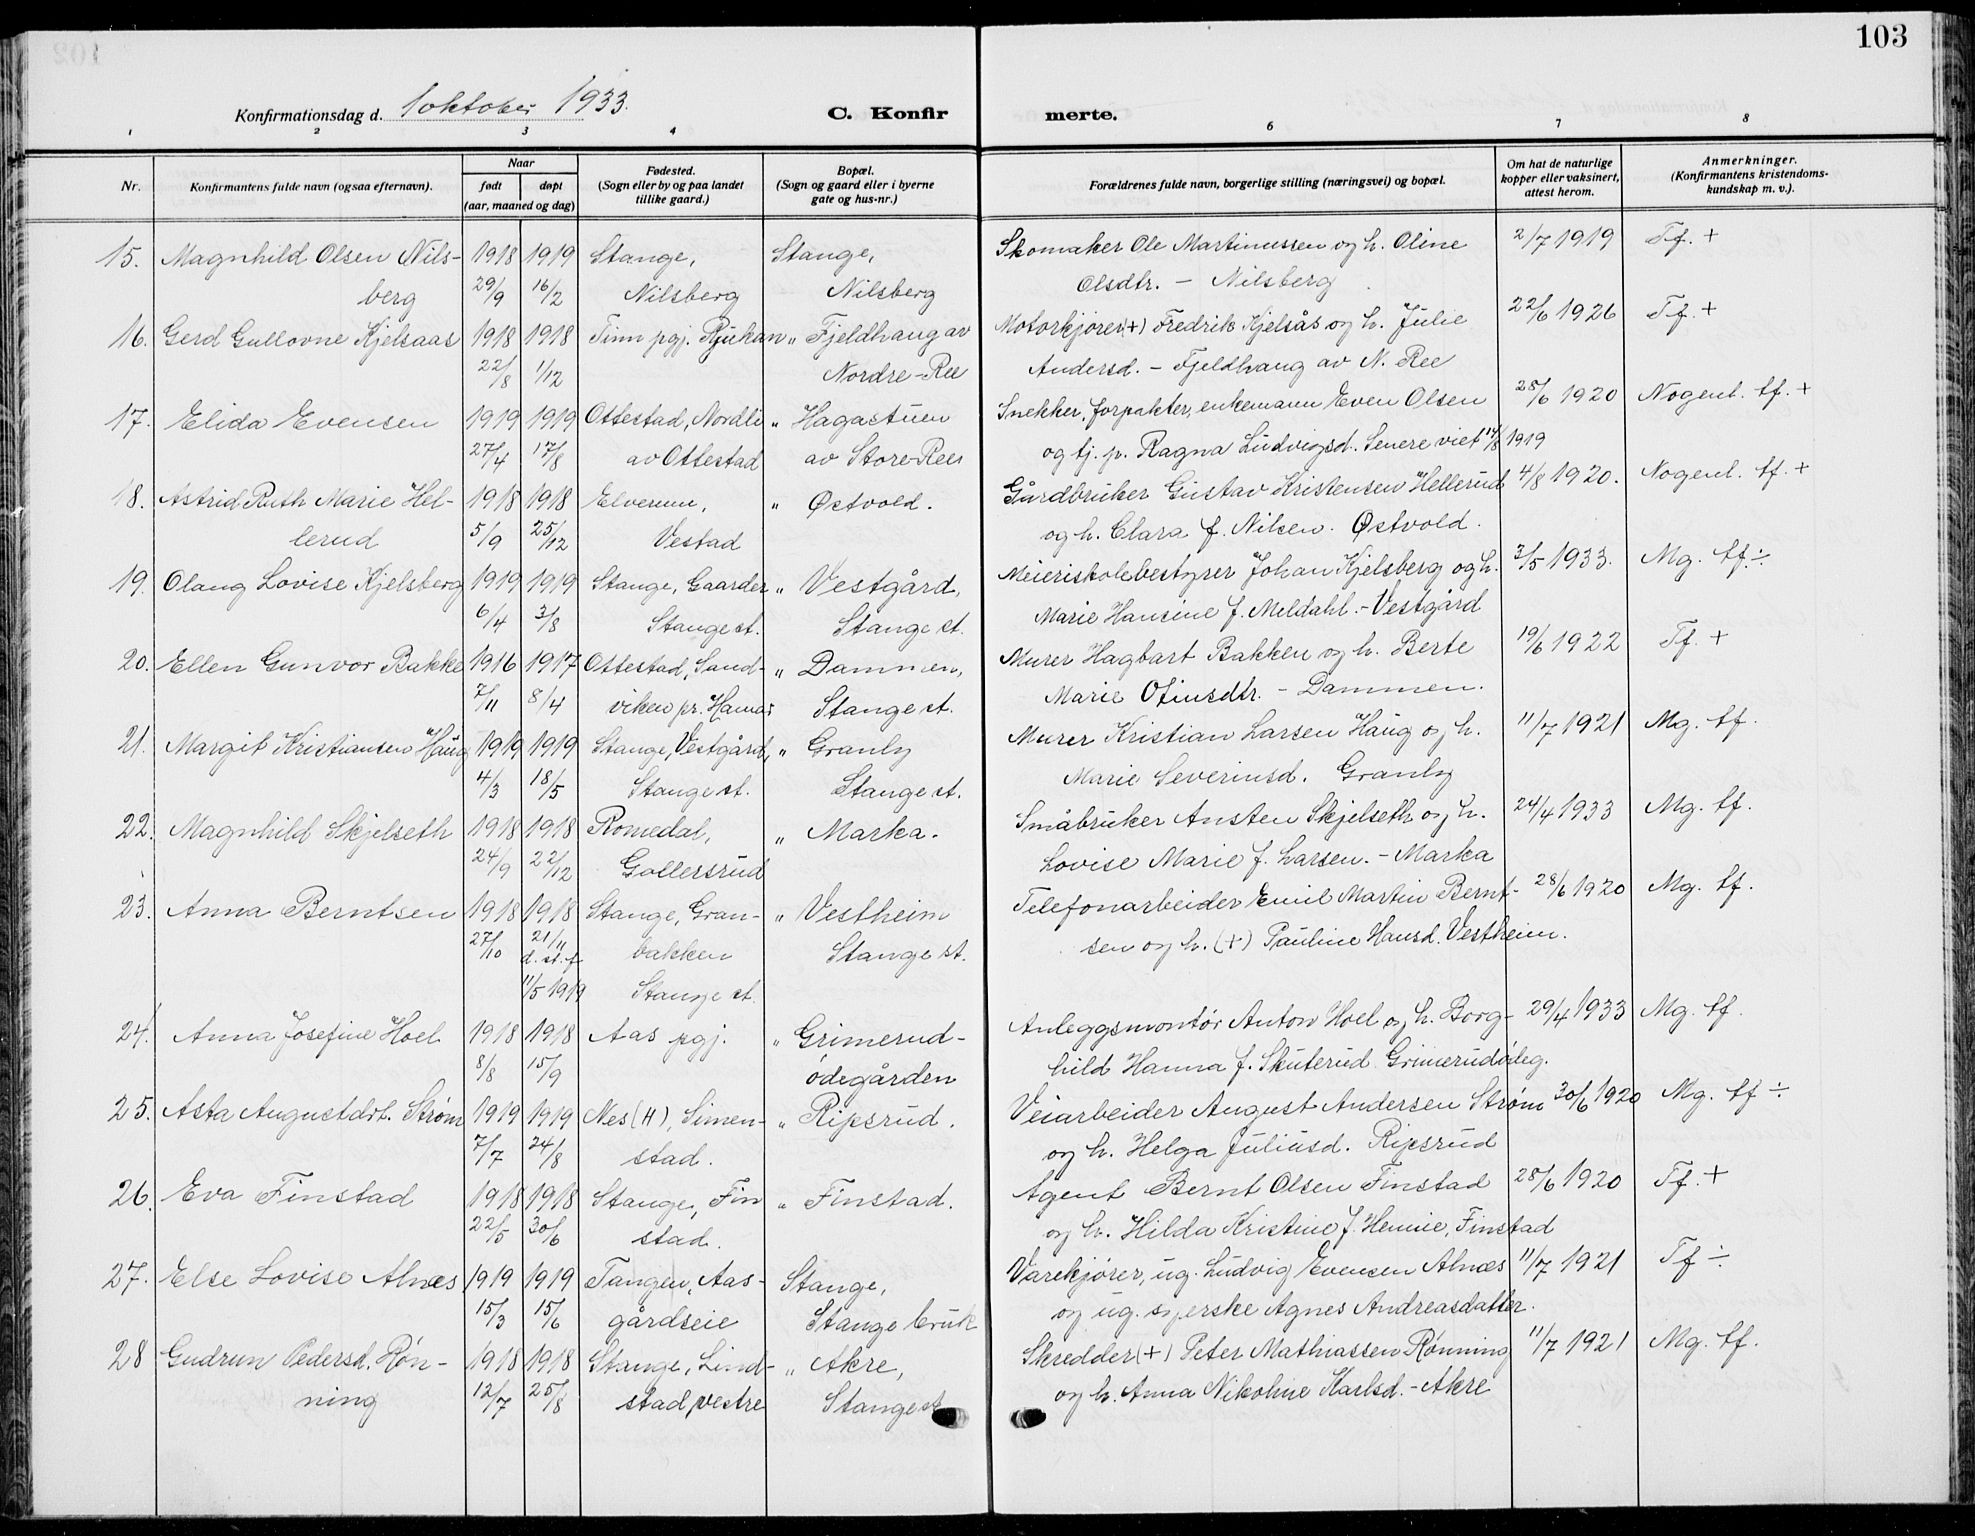 103
Konfirmationsdag d. 1 oktober 1933.
C. Konfirmerte.
1 2 3 4 6 7 8
Nr. Konfirmantens fulde navn (ogsaa efternavn). Naar født døpt (aar, maaned og dag) Fødested. (Sogn eller by og paa landet tillike gaard.) Bopæl. (Sogn og gaard eller i byerne gate og hus-nr.) Forældrenes fulde navn, borgerlige stilling (næringsvei) og bopæl. Om hat de naturlige kopper eller vaksinert, attest herom. Anmerkninger. (Konfirmantens kristendomskundskap m. v.).
15. Magnhild Olsen Nils- 1918 1919 Stange, Stange, Skomaker Ole Martinussen og h. Oline 2/7 1919 Tf. +
berg 29/9 16/2 Nilsberg Nilsberg Olsdtr. – Nilsberg
16. Gerd Gullovne Kjelsaas 1918 1918 Tinn pgj. Rjukan " Fjeldhaug av Motorkjører (+) Fredrik Kjelsås og h. Julie 22/6 1926 Tf. +
22/8 1/12 Nordre-Ree Andersd. – Fjeldhaug av N. Ree
17. Elida Evensen 1919 1919 Ottestad, Nordli " Hagastuen Snekker, forpakter, enkemann Even Olsen 28/6 1920 Nogenl. tf. +
27/4 17/8 av Ottestad av Store-Ree og tj. p. Ragna Ludvigsd. Senere viet 14/8 1919
18. Astrid Ruth Marie Hel- 1918 1918 Elverum, " Østvold. Gårdbruker Gustav Kristensen Hellerud 4/8 1920. Nogenl. tf. +
lerud 5/9 25/12 Vestad og h. Clara f. Nilsen. Østvold.
19. Olaug Lovise Kjelsberg 1919 1919 Stange, Gaarder " Vestgård, Meieriskolebestyrer Johan Kjelsberg og h. 3/5 1933. Mg. tf. ÷
6/4 3/8 Stange st. Stange st. Marie Hansine f. Meldahl. – Vestgård
20. Ellen Gunvor Bakke 1916 1917 Ottestad, Sand- " Dammen, Murer Hagbart Bakken og h. Berte 19/6 1922 Tf. +
7/11 8/4 viken pr. Hamar Stange st. Marie Otinsdtr. – Dammen.
21. Margit Kristiansen Haug 1919 1919 Stange, Vestgård, " Granly Murer Kristian Larsen Haug og h. 11/7 1921 Mg. tf.
4/3 18/5 Stange st. Stange st. Marie Severinsd. Granly
22. Magnhild Skjelseth 1918 1918 Romedal, " Marka. Småbruker Ansten Skjelseth og h. 24/4 1933 Mg. tf.
24/9 22/12 Gollersrud Lovise Marie f. Larsen. – Marka
23. Anna Berntsen 1918 1918 Stange, Gran- " Vestheim Telefonarbeider Emil Martin Bernt- 28/6 1920 Mg. tf.
27/10 21/11 bakken Stange st. sen og h. (+) Pauline Hansd. Vestheim.
d. st. f.
11/5 1919 Stange st.
24. Anna Josefine Hoel 1918 1918 Aas pgj. " Grimerud- Anleggsmontør Anton Hoel og h. Borg- 29/4 1933 Mg. tf.
8/8 15/9 ødegården hild Hanna f. Skuterud Grimerudødeg.
25. Asta Augustdrt. Strøm 1919 1919 Nes (H), Simen- " Ripsrud. Veiarbeider August Andersen Strøm 30/6 1920 Mg. tf ÷
7/7 24/8 stad. og h. Helga Juliusd. Ripsrud
26. Eva Finstad 1918 1918 Stange, Fin " Finstad. Agent Bernt Olsen Finstad 28/6 1920 Tf. +
22/5 30/6 stad. og h. Hilda Kristine f. Hennie, Finstad
27. Else Lovise Alnæs 1919 1919 Tangen, Aas- Stange, Varekjører, ug. Ludvig Evensen Alnæs 11/7 1921 Tf ÷
15/3 15/6 gårdseie Stange bruk og ug. syerske Agnes Andreasdatter.
28 Gudrun Pedersd. Røn- 1918 1918 Stange, Lind- " Akre, Skredder (+) Peter Mathiassen Rønning 11/7 1921 Mg. tf.
ning 12/7 25/8 stad vestre Stange st. og h. Anna Nikoline Karlsd. – Akre